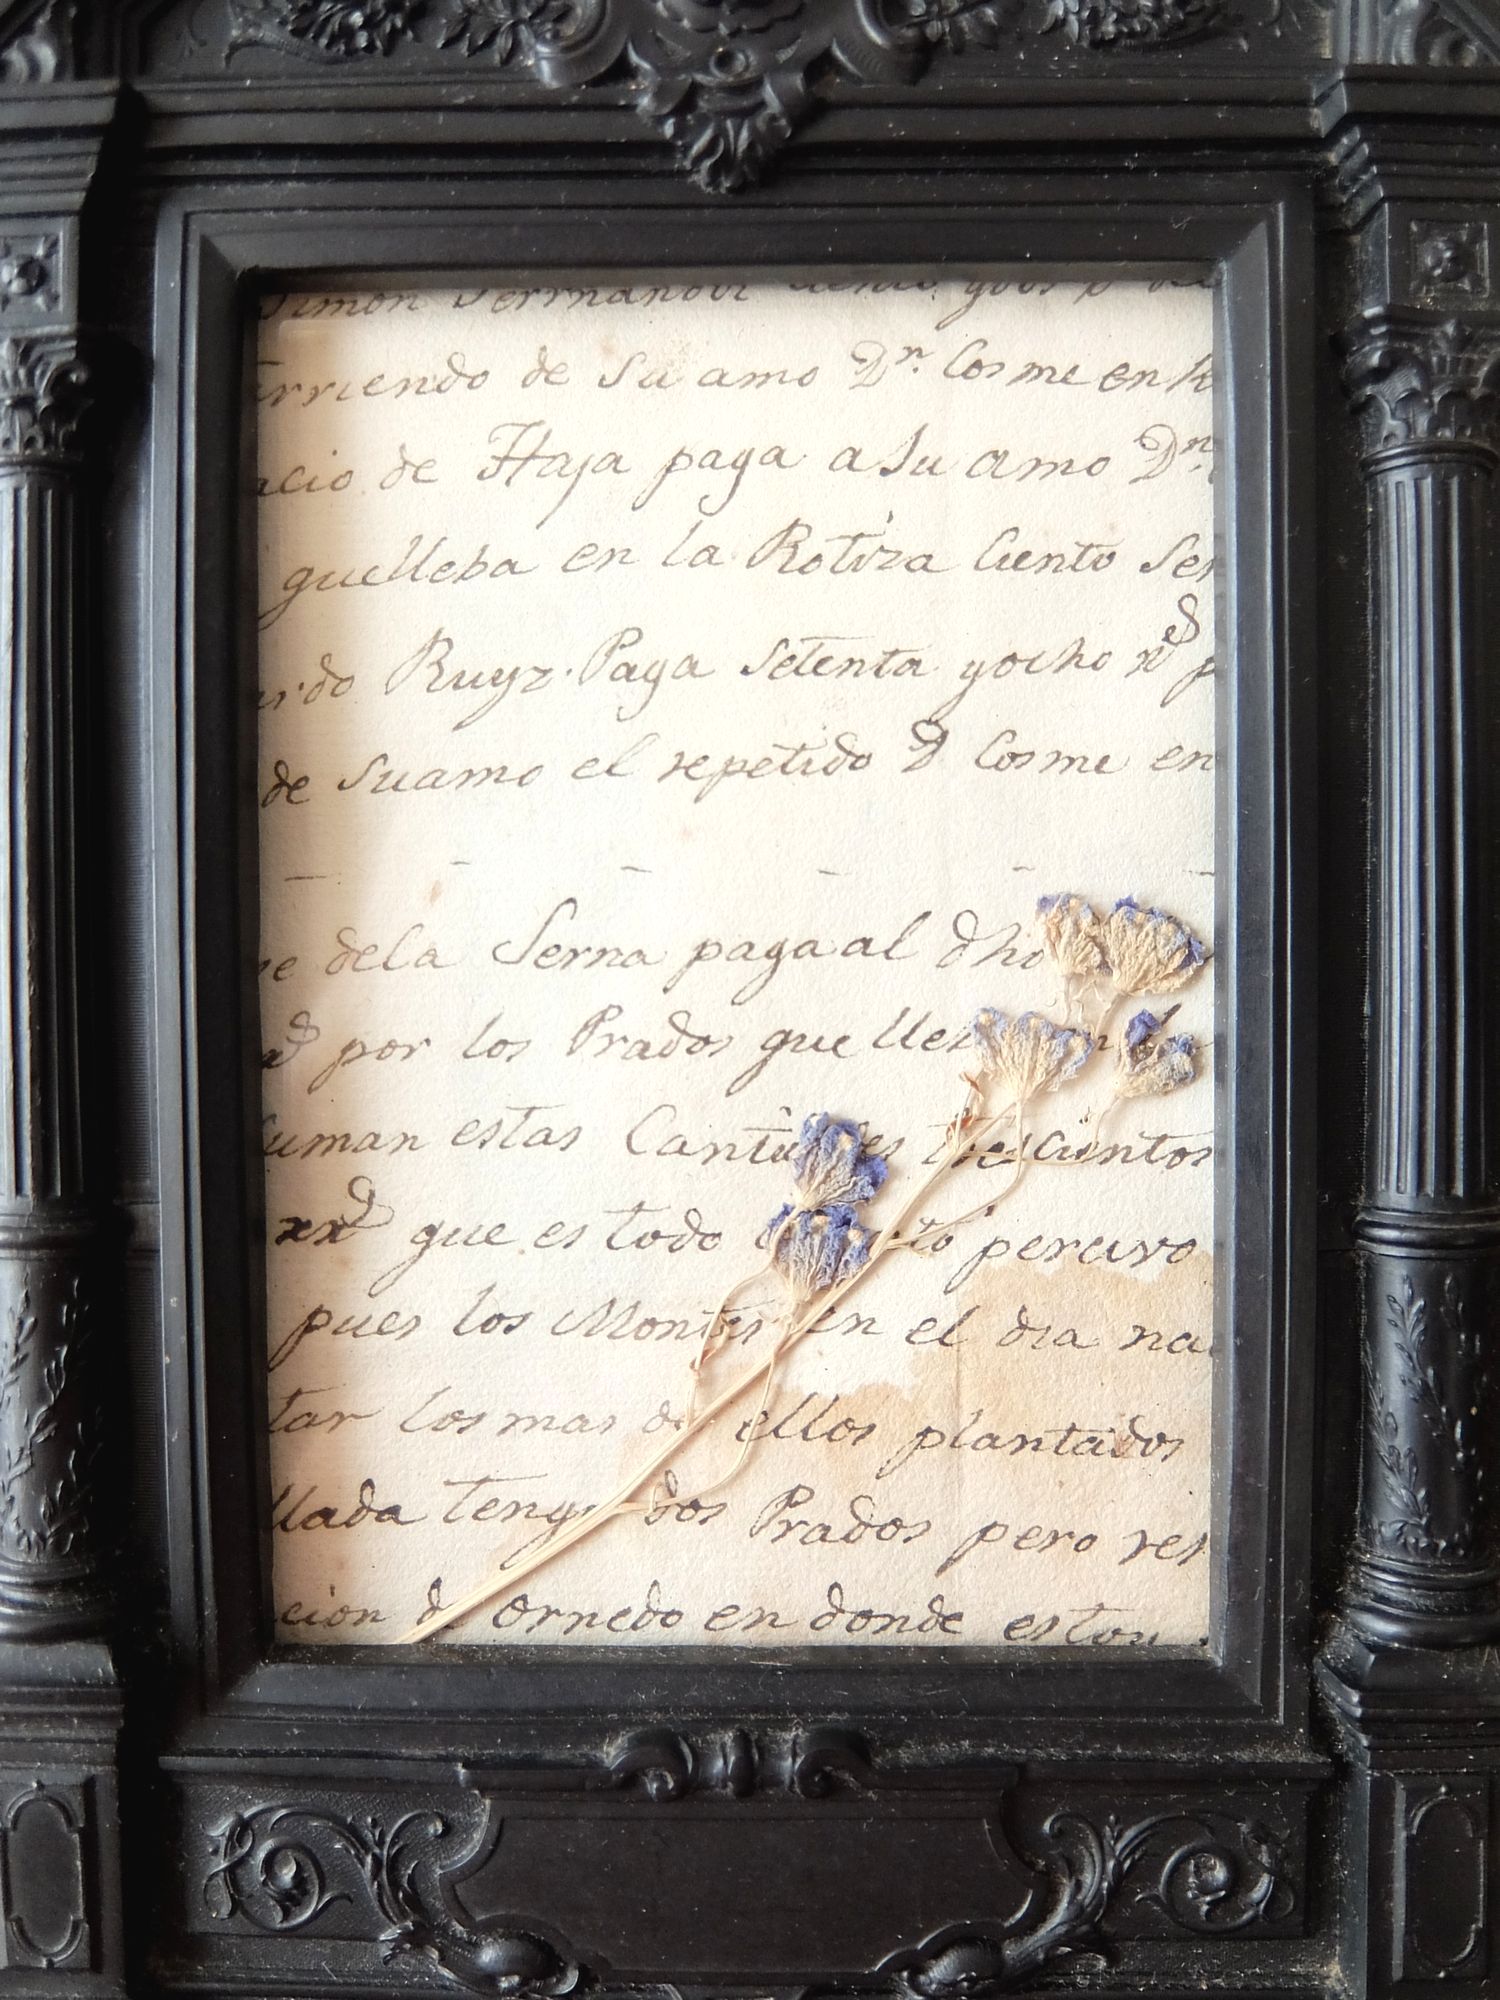 Simon
arriendo de Su amo Dn. Cosme en
acio de Haja paga a Su amo Dn.
quelleba en la Rotiza Ciento
Ruyz. Paga Setenta yocho rs
de Suamo el repetido D Cosme en
dela Serna paga al dho
por los Prados que
Suman estas trescientos
que es todo percivo
pues los Montes en el dia
tar los mas de ellos plantados
llada tengo dos Prados pero
cion de ornedo en donde